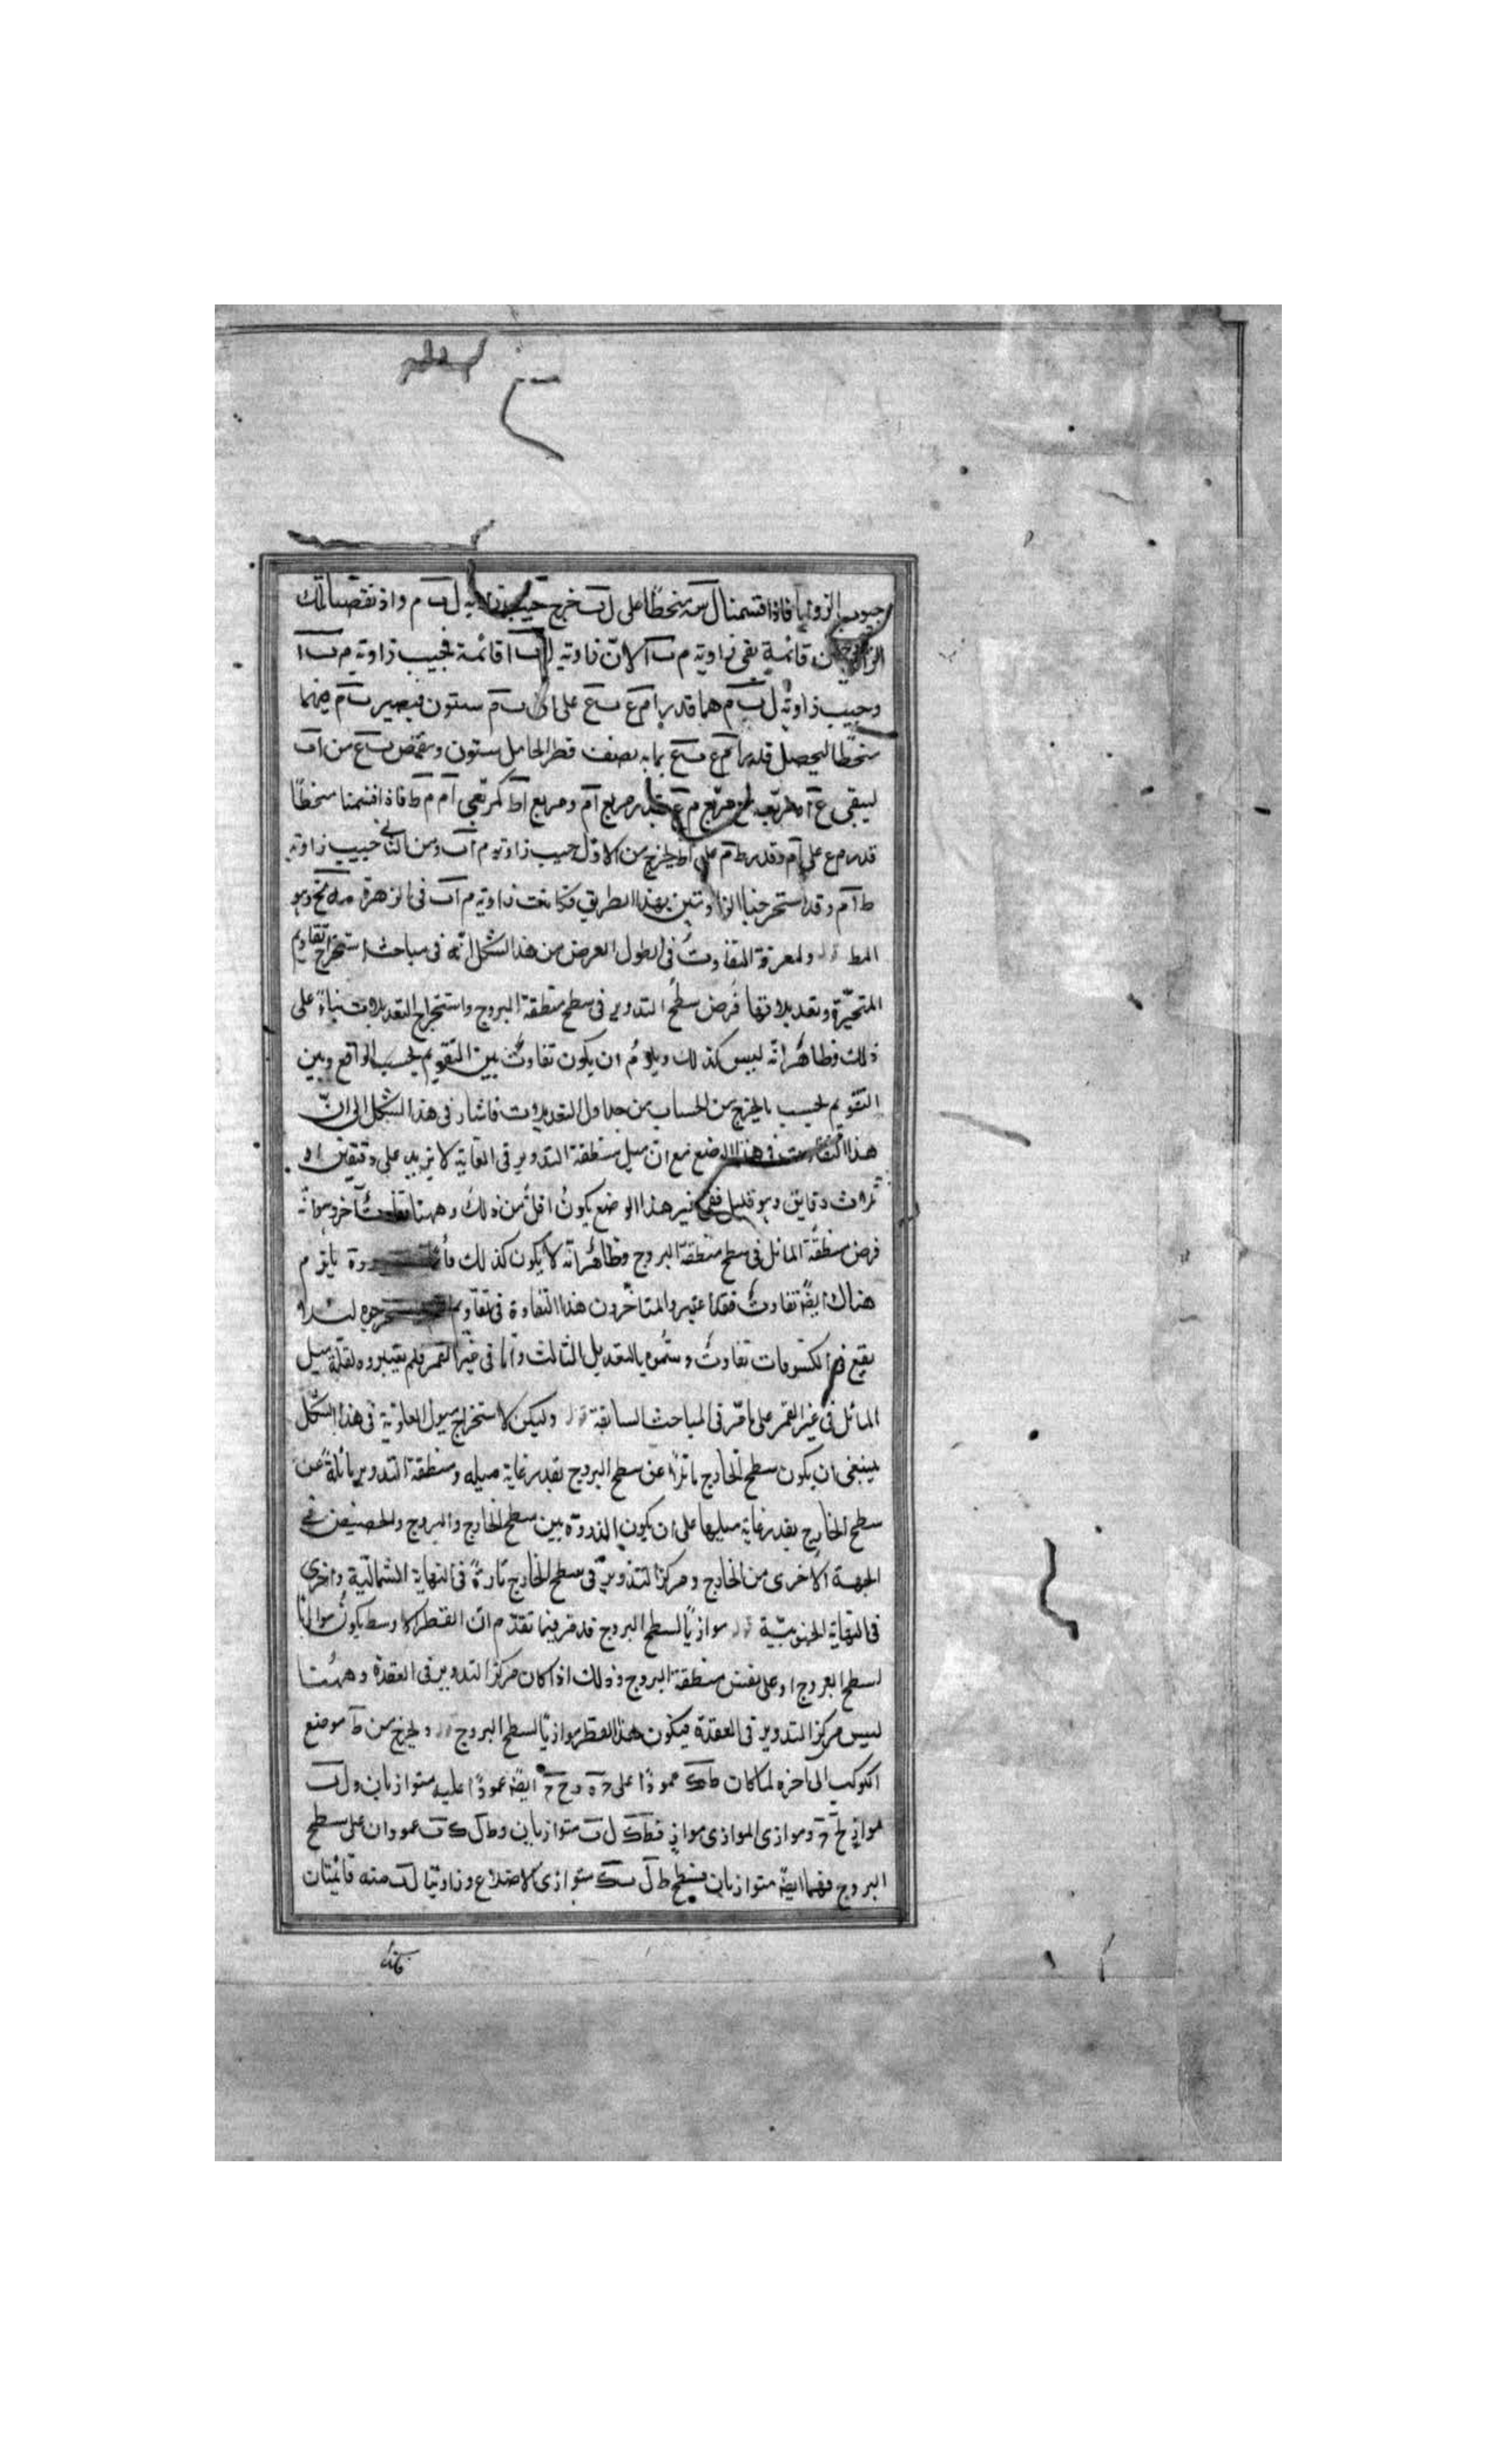 جيوب الزوايا فاذا قسمنا ل م منحطا على ل ب خرج جيب زاوية ل ب م واذ نقصنا تلك
من قائمة بقى زاوية م ب آ لان زاوية ل ب ا قائمة فجيب زاوية م ب ا
وجيب زاوية ل ب م هما قدر ا م ع ب ع على ان ب م ستون فيصير ب م فيهما
منحطا ليحصل قدر ا م ع ب ع بما به نصف قطر الحامل ستون وينقص ب ع من اب
ليبقى ع آ مربع م ع قدر مربع آم ومربع اط كمربعى آم م ط فاذا قسمنا منحطا
قدر م ع على آم وقدر ط م على اط ليخرج من الاول جيب زاوية م آب ومن الثانى جيب زاوية
ط آم وقد استخرجنا الزاويتين بهذا الطريق فكانت زاوية م آب فى الزهرة مه نح وهو
المط قوله ولمعرفة التفاوت فى الطول العرض من هذا الشكل انه فى مباحث استخراج تقاويم
المتحيرة وتعديلاتها فرض سطح التدوير فى سطح منطقة البروج واستخراج التعديلات بناء على
ذلك فظاهر انه ليس كذلك ويلزم ان يكون تفاوت بين التقويم بحسب الواقع وبين
التقويم بحسب ما يخرج من الحساب من جداول التعديلات فاشار فى هذا الشكل الى ان
هذا التفاوت فى هذا الوضع مع ان ميل منطقة التدوير فى الغاية لا يزيد على دقيقتين او
ثلاث دقايق وهو قليل ففى غير هذا الوضع يكون اقل من ذلك وههنا تفاوت آخر وهو انه
فرض منطقة المائل فى سطح منطقة البروج وظاهر انه لا يكون كذلك يلزم
هناك ايضا تفاوت فقد اعتبر والمتاخرون هذا التفاوة فى تقاويم لئلا
يقع فى الكسوفات تفاوت وسموه بالتعديل الثالث واما فى غير القمر فلم يعتبروه لقلة ميل
المائل فى غير القمر على ما مر فى المباحث السابقة قوله وليكن لاستخراج ميول العلوية فى هذا الشكل
ينبغى ان يكون سطح الخارج مائلا عن سطح البروج بقدر غاية ميله ومنطقة التدوير مائلة عن
سطح الخارج بقدر غاية ميلها على ان يكون الذروة بين سطح الخارج والبروج والحضيض فى
الجهة الاخرى من الخارج ومركز التدوير فى سطح الخارج تارة فى النهاية الشمالية واخرى
فى النهاية الجنوبية قوله موازيا لسطح البروج قد مر فيما تقدم ان القطر الاوسط يكون موازيا
لسطح البروج او على نفس منطقة البروج وذلك اذا كان مركز التدوير فى العقدة وههنا
ليس مركز التدوير فى العقدة فيكون هذا القطر موازيا لسطح البروج قوله ولخرج من ط موضع
الكوكب الى آخره لما كان ط ك عمودا على ح ه و ح ايضا عمودا عليه متوازيان و ل ب
موازى ح وموازى الموازى مواز ف ط ك ل ب متوازيان و ط ل ك ب عمودان على سطح
البروج فهما ايضا متوازيان فسطح ط ل ب ك متوازى الاضلاع وزاويتا ل ب منه قائمتان